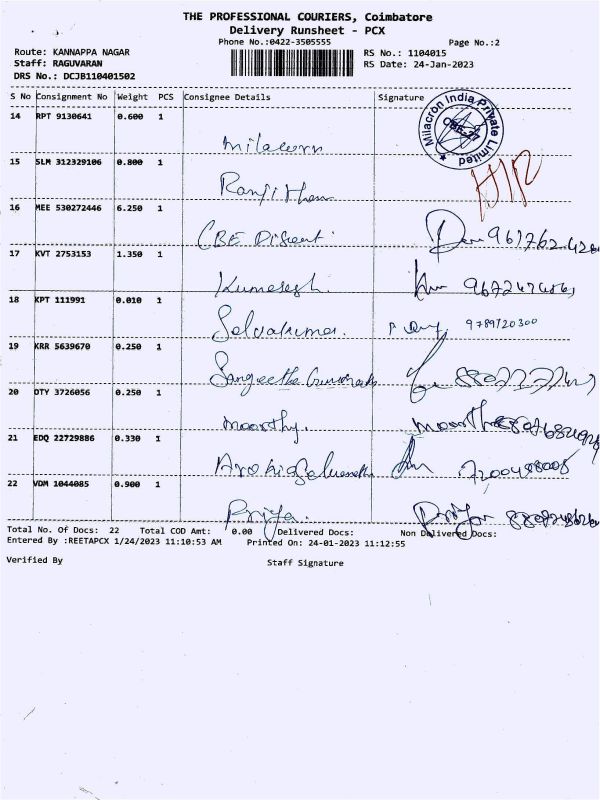 THE PROFESSIONAL COURIERS, Coimbatore
Delivery Runsheet - PCX
Phone No.:0422-3505555 Page No.:2
Route: KANNAPPA NAGAR RS No.: 1104015
Staff: RAGUVARAN RS Date: 24-Jan-2023
DRS No.: DCJB110401502
S No Consignment No Weight PCS Consignee Details Signature
14 RPT 9130641 0.600 1
Milacron India Private Limited
CBE-27
milacorn
15 SLM 312329106 0.800 1
Ranjitham
16 MEE 530272446 6.250 1
CBE
17 KVT 2753153 1.350 1
Kumaresh.
18 KPT 111991 0.010 1
Selvakumar. 9789720300
19 KRR 5639670 0.250 1
Sangeetha
20 OTY 3726056 0.250 1
moorthy.
21 EDQ 22729886 0.330 1
22 VDM 1044085 0.900 1
Priya. Priya
Total No. Of Docs: 22 Total COD Amt: 0.00 Delivered Docs: Non Delivered Docs:
Entered By :REETAPCX 1/24/2023 11:10:53 AM Printed On: 24-01-2023 11:12:55
Verified By Staff Signature